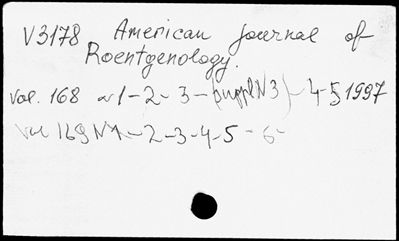 V3178 American Journal of
Roentgenology.
Vol. 168 N1-2-3-(supplN3)-4-5 1997
Vol 169 N1-2-3-4-5-6-